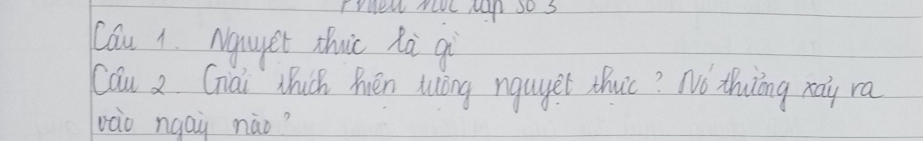 Phiếu học tập số 3
Câu 1. Nguyệt thực là gì
Câu 2. Giải thích hiện tượng nguyệt thực? Nó thường xảy ra
vào ngày nào?